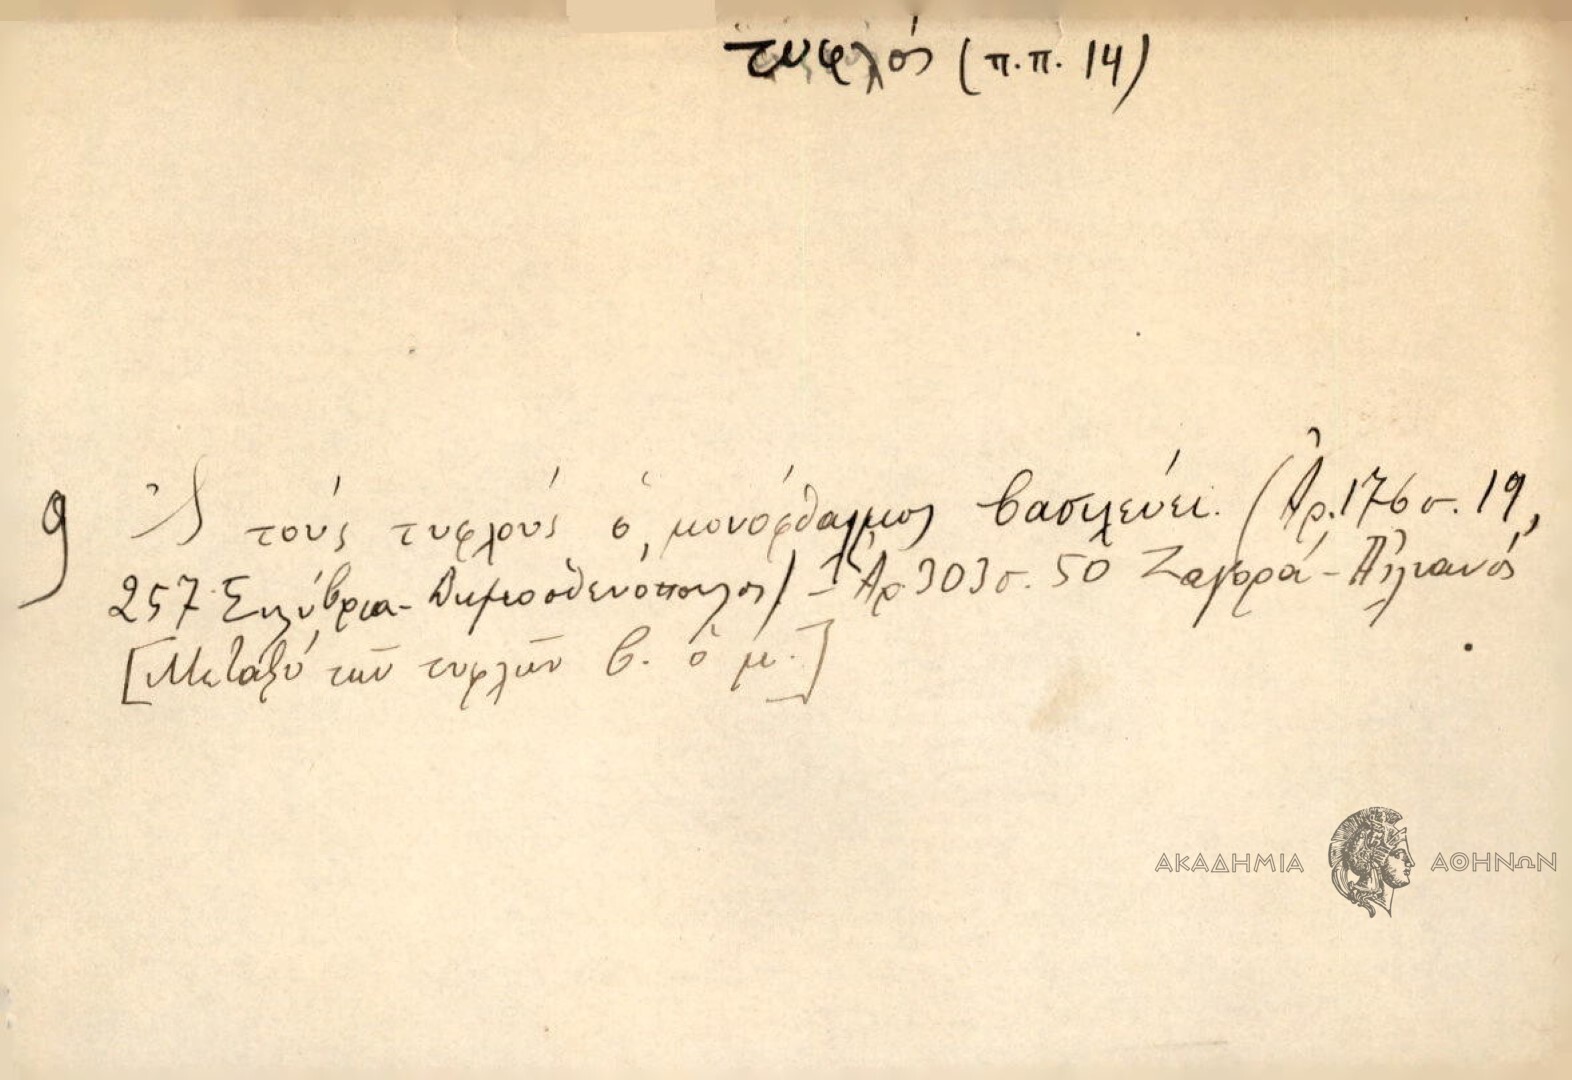 τυφλός (π.π. 14)
9 Σ τους τυφλούς ὁ μονόφθαλμος βασιλεύει. (Ἀρ. 176 σ. 19,
257 Σηλύβρια - Δημοσθενόπουλος) - Ἀρ. 303 σ. 50 Ζαγορά -
[Μεταξύ τῶν τυφλῶν β. ὁ μ.]
ΑΚΑΔΗΜΙΑ ΑΘΗΝΩΝ